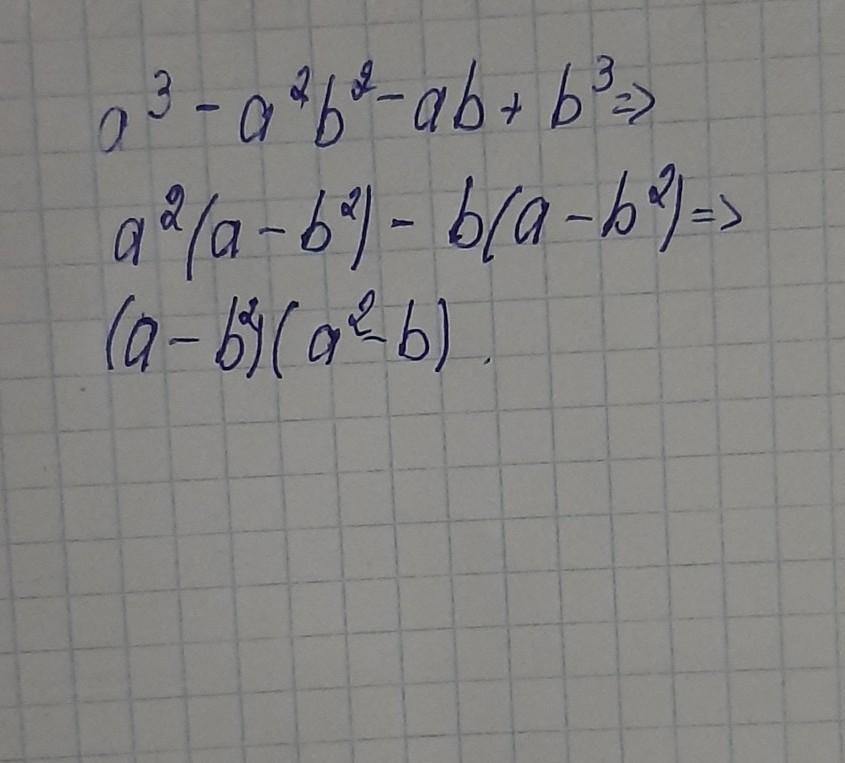 a³ - a²b² - ab + b³ =>
a²(a - b²) - b(a - b²) =>
(a - b²)(a² - b).